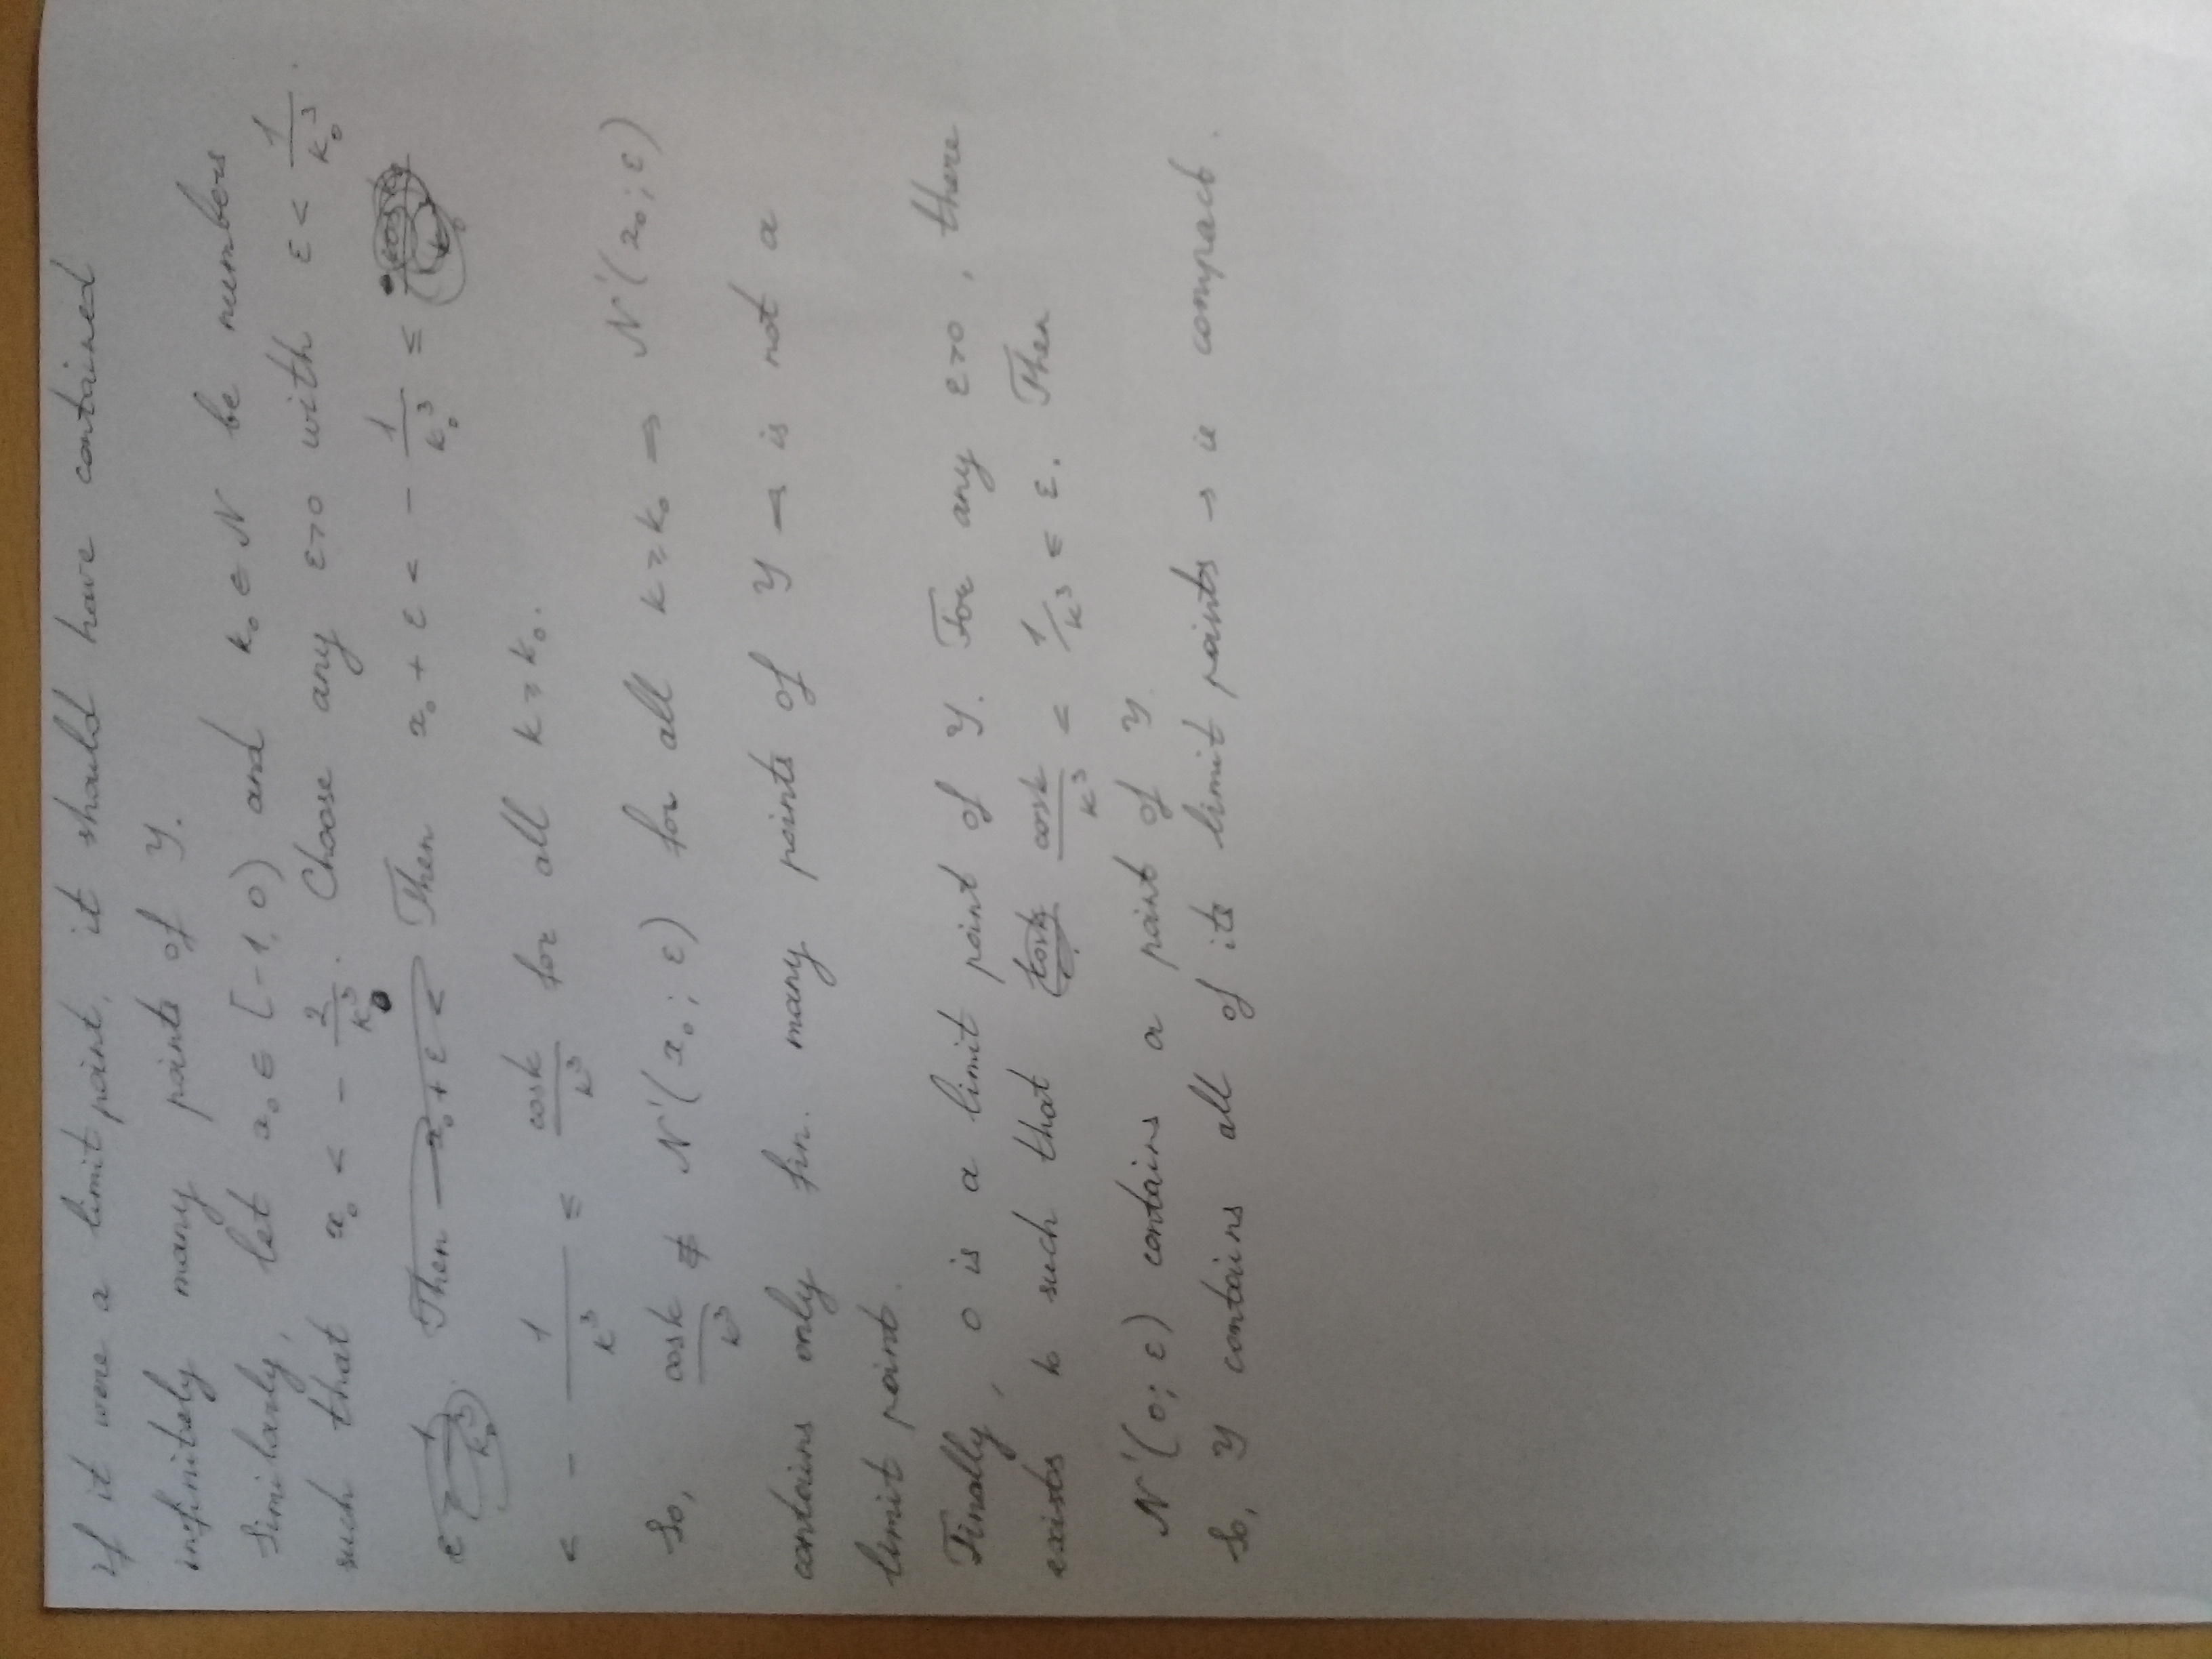 If it were a limit point, it should have contained
infinitely many points of Y.
Similarly, let x₀ ∈ [-1, 0) and k₀ ∈ N be numbers
such that x₀ < - 2/k₀³. Choose any ε>0 with ε < 1/k₀³.
Then Then x₀ + ε < - 1/k₀³ ≤
< - 1/k³ ≤ cosk/k³ for all k ≥ k₀.
So, cosk/k³ ∉ N'(x₀; ε) for all k ≥ k₀ ⇒ N'(x₀; ε)
contains only fin. many points of Y → is not a
limit point.
Finally, 0 is a limit point of Y. For any ε>0, there
exists k such that cosk/k³ < 1/k³ ≤ ε. Then
N'(0; ε) contains a point of Y.
So, Y contains all of its limit points → is compact.